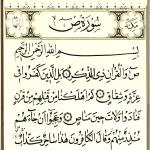 سورة ص
بسم الله الرحمن الرحيم
ص والقرآن ذي الذكر بل الذين كفروا في
عزة وشقاق كم أهلكنا من قبلهم من قرن
فنادوا ولات حين مناص وعجبوا أن جاءهم
منذر منهم وقال الكافرون هذا ساحر كذاب